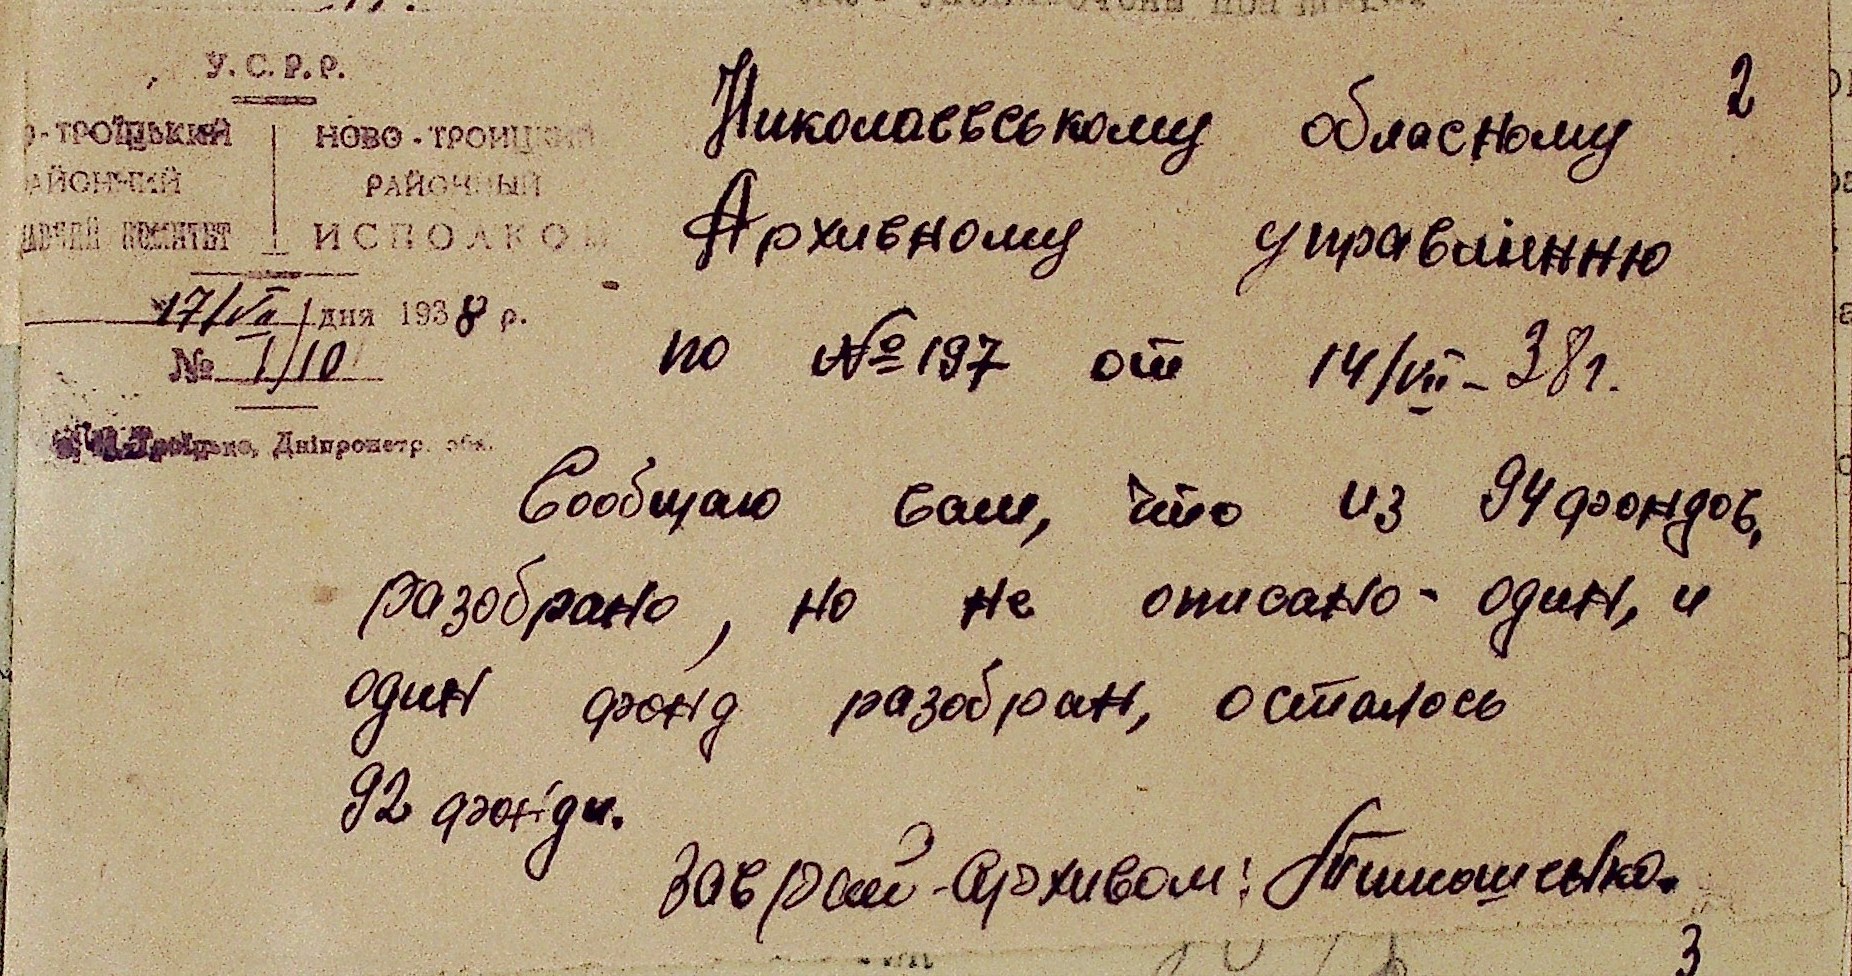 2
У.С.Р.Р.
-ТРОЇЦЬКИЙ
АЙОННИЙ
КОМІТЕТ
НОВО-ТРОИЦКИЙ
РАЙОННЫЙ
ИСПОЛКОМ
17/VII дня 1938 р.
№ 1/10
Троїцьке, Дніпропетр. обл.
Николаевському обласному
Архивному управлінню
по №197 от 14/VII-38г.
Сообщаю вам, что из 94 фондов,
разобрано, но не описано - один, и
один фонд разобран, осталось
92 фонди.
Зав рай-Архивом: Тимошенко.
3